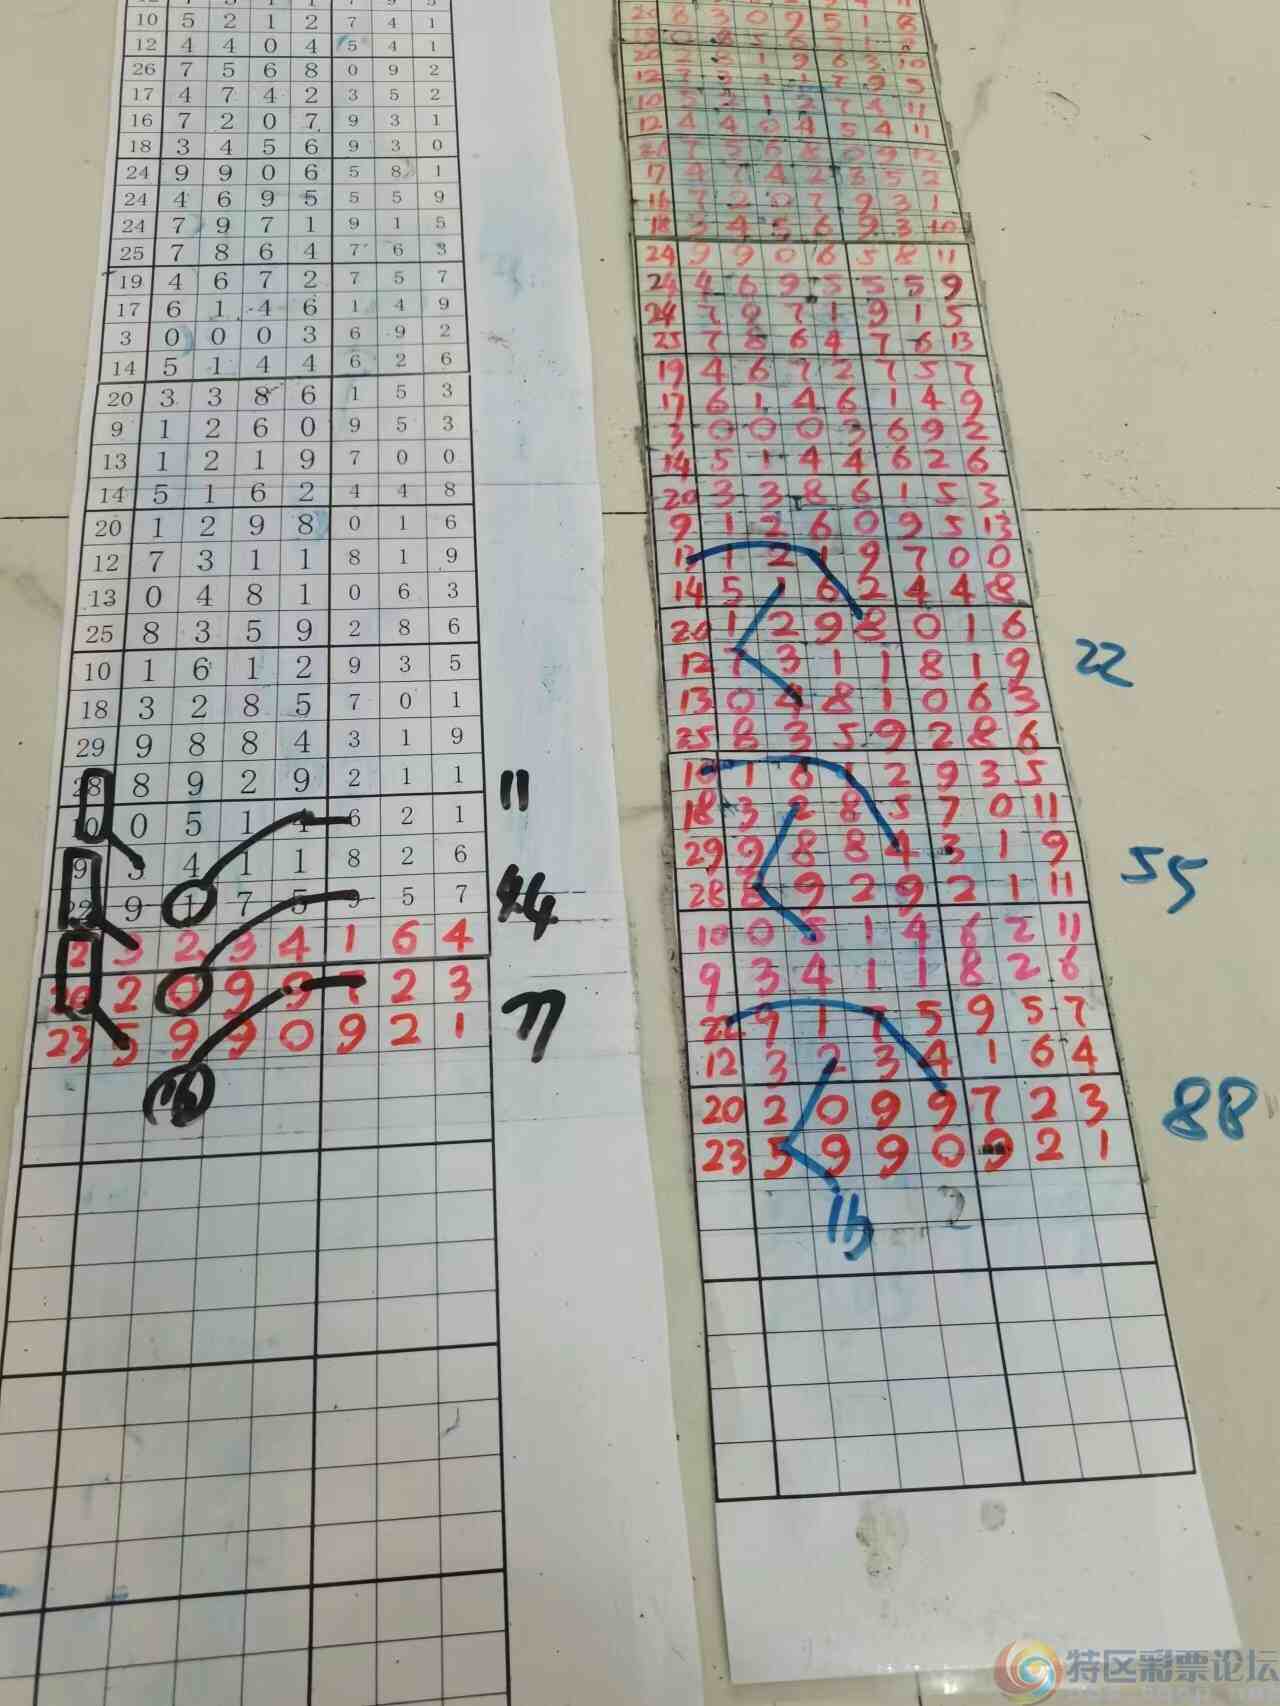 10 5 2 1 2 7 4 1
12 4 4 0 4 5 4 1
26 7 5 6 8 0 9 2
17 4 7 4 2 3 5 2
16 7 2 0 7 9 3 1
18 3 4 5 6 9 3 0
24 9 9 0 6 5 8 1
24 4 6 9 5 5 5 9
24 7 9 7 1 9 1 5
25 7 8 6 4 7 6 3
19 4 6 7 2 7 5 7
17 6 1 4 6 1 4 9
3 0 0 0 3 6 9 2
14 5 1 4 4 6 2 6
20 3 3 8 6 1 5 3
9 1 2 6 0 9 5 3
13 1 2 1 9 7 0 0
14 5 1 6 2 4 4 8
20 1 2 9 8 0 1 6
12 7 3 1 1 8 1 9
13 0 4 8 1 0 6 3
25 8 3 5 9 2 8 6
10 1 6 1 2 9 3 5
18 3 2 8 5 7 0 1
29 9 8 8 4 3 1 9
28 8 9 2 9 2 1 1
11
10 0 5 1 4 6 2 1
9 3 4 1 1 8 2 6
22 9 1 7 5 9 5 7
44
12 3 2 3 4 1 6 4
20 2 0 9 9 7 2 3
77
23 5 9 9 0 9 2 1
20 8 3 0 9 5 1 8
10 5 2 1 2 7 4 11
12 4 4 0 4 5 4 11
26 7 5 6 8 0 9 12
17 4 7 4 2 3 5 2
16 7 2 0 7 9 3 1
18 3 4 5 6 9 3 10
24 9 9 0 6 5 8 11
24 4 6 9 5 5 5 9
24 7 9 7 1 9 1 5
25 7 8 6 4 7 6 13
19 4 6 7 2 7 5 7
17 6 1 4 6 1 4 9
3 0 0 0 3 6 9 2
14 5 1 4 4 6 2 6
20 3 3 8 6 1 5 3
9 1 2 6 0 9 5 13
13 1 2 1 9 7 0 0
14 5 1 6 2 4 4 8
20 1 2 9 8 0 1 6
12 7 3 1 1 8 1 9
22
13 0 4 8 1 0 6 3
25 8 3 5 9 2 8 6
10 1 6 1 2 9 3 5
18 3 2 8 5 7 0 11
29 9 8 8 4 3 1 9
55
28 8 9 2 9 2 1 11
10 0 5 1 4 6 2 11
9 3 4 1 1 8 2 6
22 9 1 7 5 9 5 7
12 3 2 3 4 1 6 4
20 2 0 9 9 7 2 3
88
23 5 9 9 0 9 2 1
2
特区彩票论坛